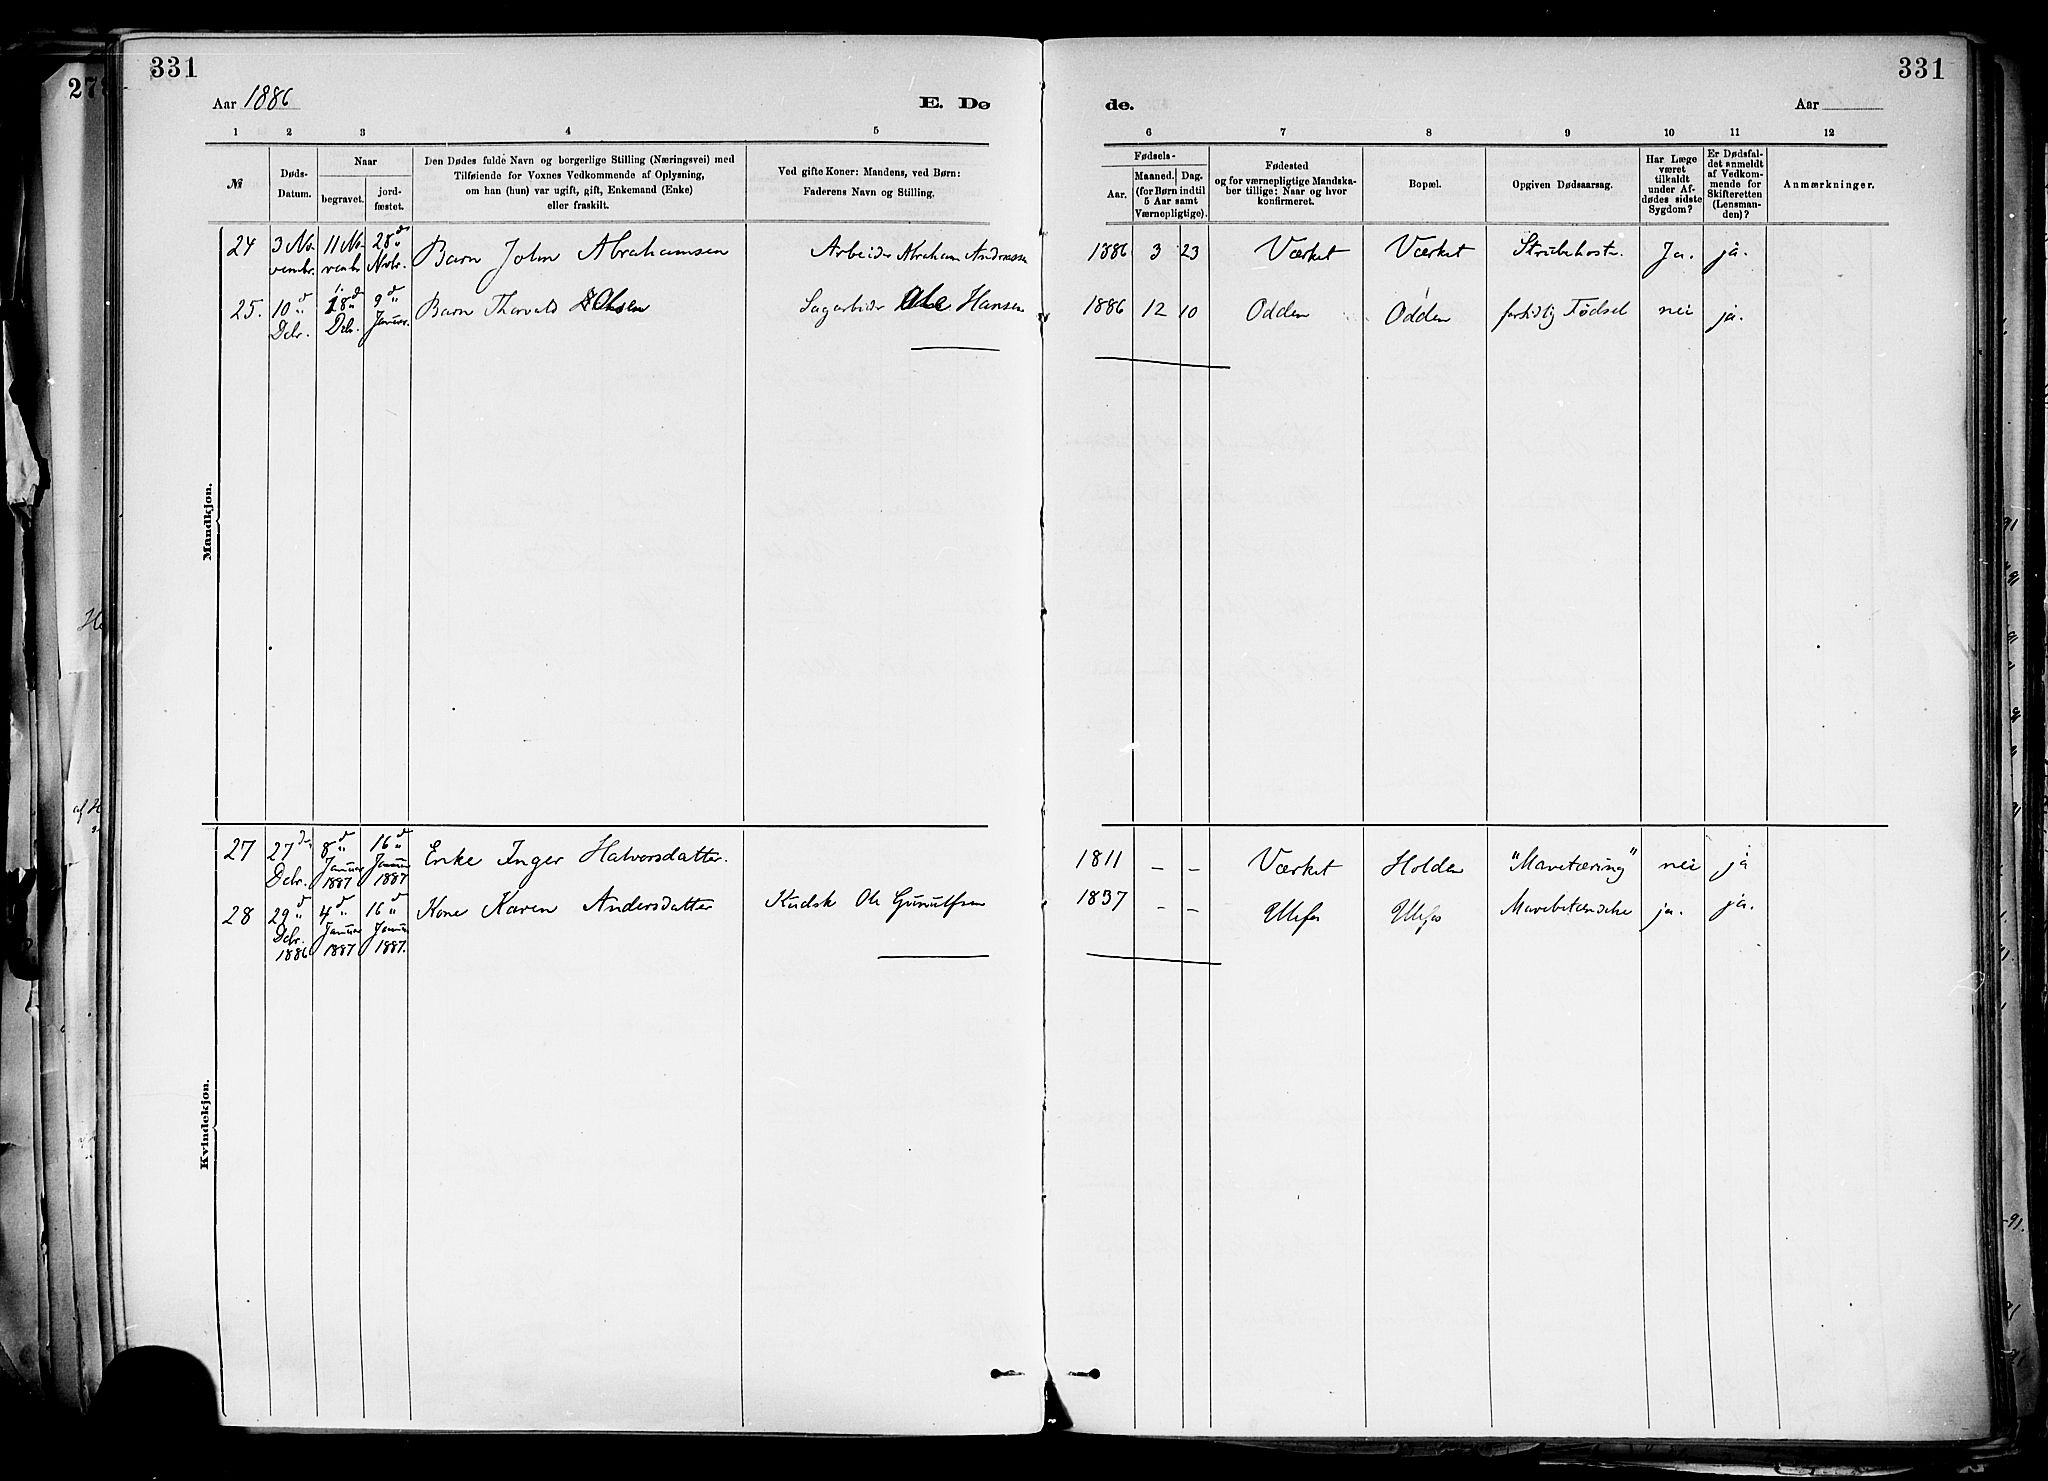 331
331
Aar 1886
E. Dø
de.
Aar
1 2 3 4 5 6 7 8 9 10 11 12
№
Døds-
Datum.
Naar
begravet.
jord-
fæstet.
Den Dødes fulde Navn og borgerlige Stilling (Næringsvei) med
Tilføiende for Voxnes Vedkommende af Oplysning,
om han (hun) var ugift, gift, Enkemand (Enke)
eller fraskilt.
Ved gifte Koner: Mandens, ved Børn:
Faderens Navn og Stilling.
Fødsels-
Aar.
Maaned. Dag.
(for Børn indtil
5 Aar samt
Værnepligtige).
Fødested
og for værnepligtige Mandska-
ber tillige: Naar og hvor
konfirmeret.
Bopæl.
Opgiven Dødsaarsag.
Har Læge
været
tilkaldt
under Af-
dødes sidste
Sygdom?
Er Dødsfal-
det anmeldt
af Vedkom-
mende for
Skifteretten
(Lensman-
den)?
Anmærkninger.
Mandkjøn.
24 3 No-
vembr. 11 No-
vembr 28de
Novbr. Barn John Abrahamsen Arbeider Abraham Andreassen 1886 3 23 Værket Værket Strubehoste. Ja. ja.
25. 10d
Dcbr. 18d
Dcbr. 9d
Januar. Barn Thorvald Olsen Sagarbeider Ole Hansen 1886 12 10 Odden Odden fortidlig Fødsel nei ja.
Kvindekjøn.
27 27de
Dcbr. 8d
Januar
1887 16d
Januar
1887 Enke Inger Halvorsdatter. 1811 – – Værket Holden "Mavetæring" nei ja
28 29d
Dcbr.
1886 4d
Januar
1887 16d
Januar
1887. Kone Karen Andersdatter Kudsk Ole Gunulfsen 1837 – – Ulefos Ulefos Mavebetændelse ja. ja.